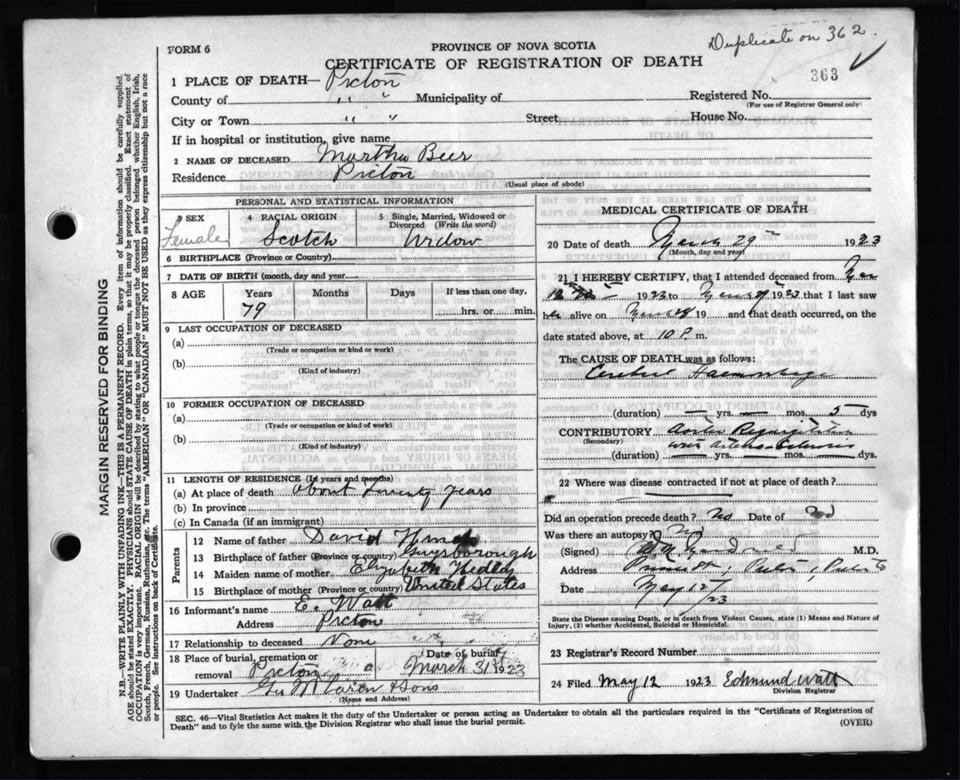 Duplicate on 362
363
FORM 6
PROVINCE OF NOVA SCOTIA
CERTIFICATE OF REGISTRATION OF DEATH
1 PLACE OF DEATH— Pictou
County of " " Municipality of Registered No.
(For use of Registrar General only)
City or Town " " Street House No.
If in hospital or institution, give name
2 NAME OF DECEASED Martha Beer
Residence Pictou
(Usual place of abode)
PERSONAL AND STATISTICAL INFORMATION
3 SEX Female
4 RACIAL ORIGIN Scotch
5 Single, Married, Widowed or Divorced (Write the word) Widow
6 BIRTHPLACE (Province or Country)
7 DATE OF BIRTH (month, day and year)
8 AGE Years Months Days If less than one day,
79 hrs. or min.
9 LAST OCCUPATION OF DECEASED
(a)
(Trade or occupation or kind or work)
(b)
(Kind of industry)
10 FORMER OCCUPATION OF DECEASED
(a)
(Trade or occupation or kind of work)
(b)
(Kind of industry)
11 LENGTH OF RESIDENCE (In years and months)
(a) At place of death about twenty years
(b) In province
(c) In Canada (if an immigrant)
Parents
12 Name of father David
13 Birthplace of father (Province or country) Guysborough
14 Maiden name of mother Elizabeth
15 Birthplace of mother (Province or country) United States
16 Informant's name E. Watt
Address Pictou
17 Relationship to deceased None
18 Place of burial, cremation or removal Pictou Date of burial March 31st 1923
19 Undertaker & Sons
(Name and Address)
MEDICAL CERTIFICATE OF DEATH
20 Date of death March 29th 1923
(Month, day and year)
21 I HEREBY CERTIFY, that I attended deceased from Mar
1923 to 1923 that I last saw
her alive on 19 and that death occurred, on
date stated above, at 10 P. m.
The CAUSE OF DEATH was as follows:
Cerebral Haemorrhage
(duration) — yrs. — mos. 5 dys
CONTRIBUTORY Aortic Regurgitation
(Secondary) with
(duration) — yrs. — mos. — dys.
22 Where was disease contracted if not at place of death?
Did an operation precede death? No Date of
Was there an autopsy? No
(Signed) M.D.
Address Pictou
Date May 12/23
State the Disease causing Death, or in death from Violent Causes, state (1) Means and Nature of Injury, (2) whether Accidental, Suicidal or Homicidal.
23 Registrar's Record Number
24 Filed May 12 1923 Edmund Watt
Division Registrar
SEC. 46—Vital Statistics Act makes it the duty of the Undertaker or person acting as Undertaker to obtain all the particulars required in the "Certificate of Registration of
Death" and to fyle the same with the Division Registrar who shall issue the burial permit.
(OVER)
MARGIN RESERVED FOR BINDING
N.B.—WRITE PLAINLY WITH UNFADING INK—THIS IS A PERMANENT RECORD. Every item of information should be carefully supplied.
AGE should be stated EXACTLY. PHYSICIANS should STATE CAUSE OF DEATH in plain terms, so that it may be properly classified. Exact statement of
OCCUPATION is very important. RACIAL ORIGIN will be described by stating to what people or tongue the deceased person belonged whether English, Irish,
Scotch, French, German, Russian, Ruthenian, etc. The terms "AMERICAN" OR "CANADIAN" MUST NOT BE USED as they express citizenship but not a race
or people. See instructions on back of Certificate.